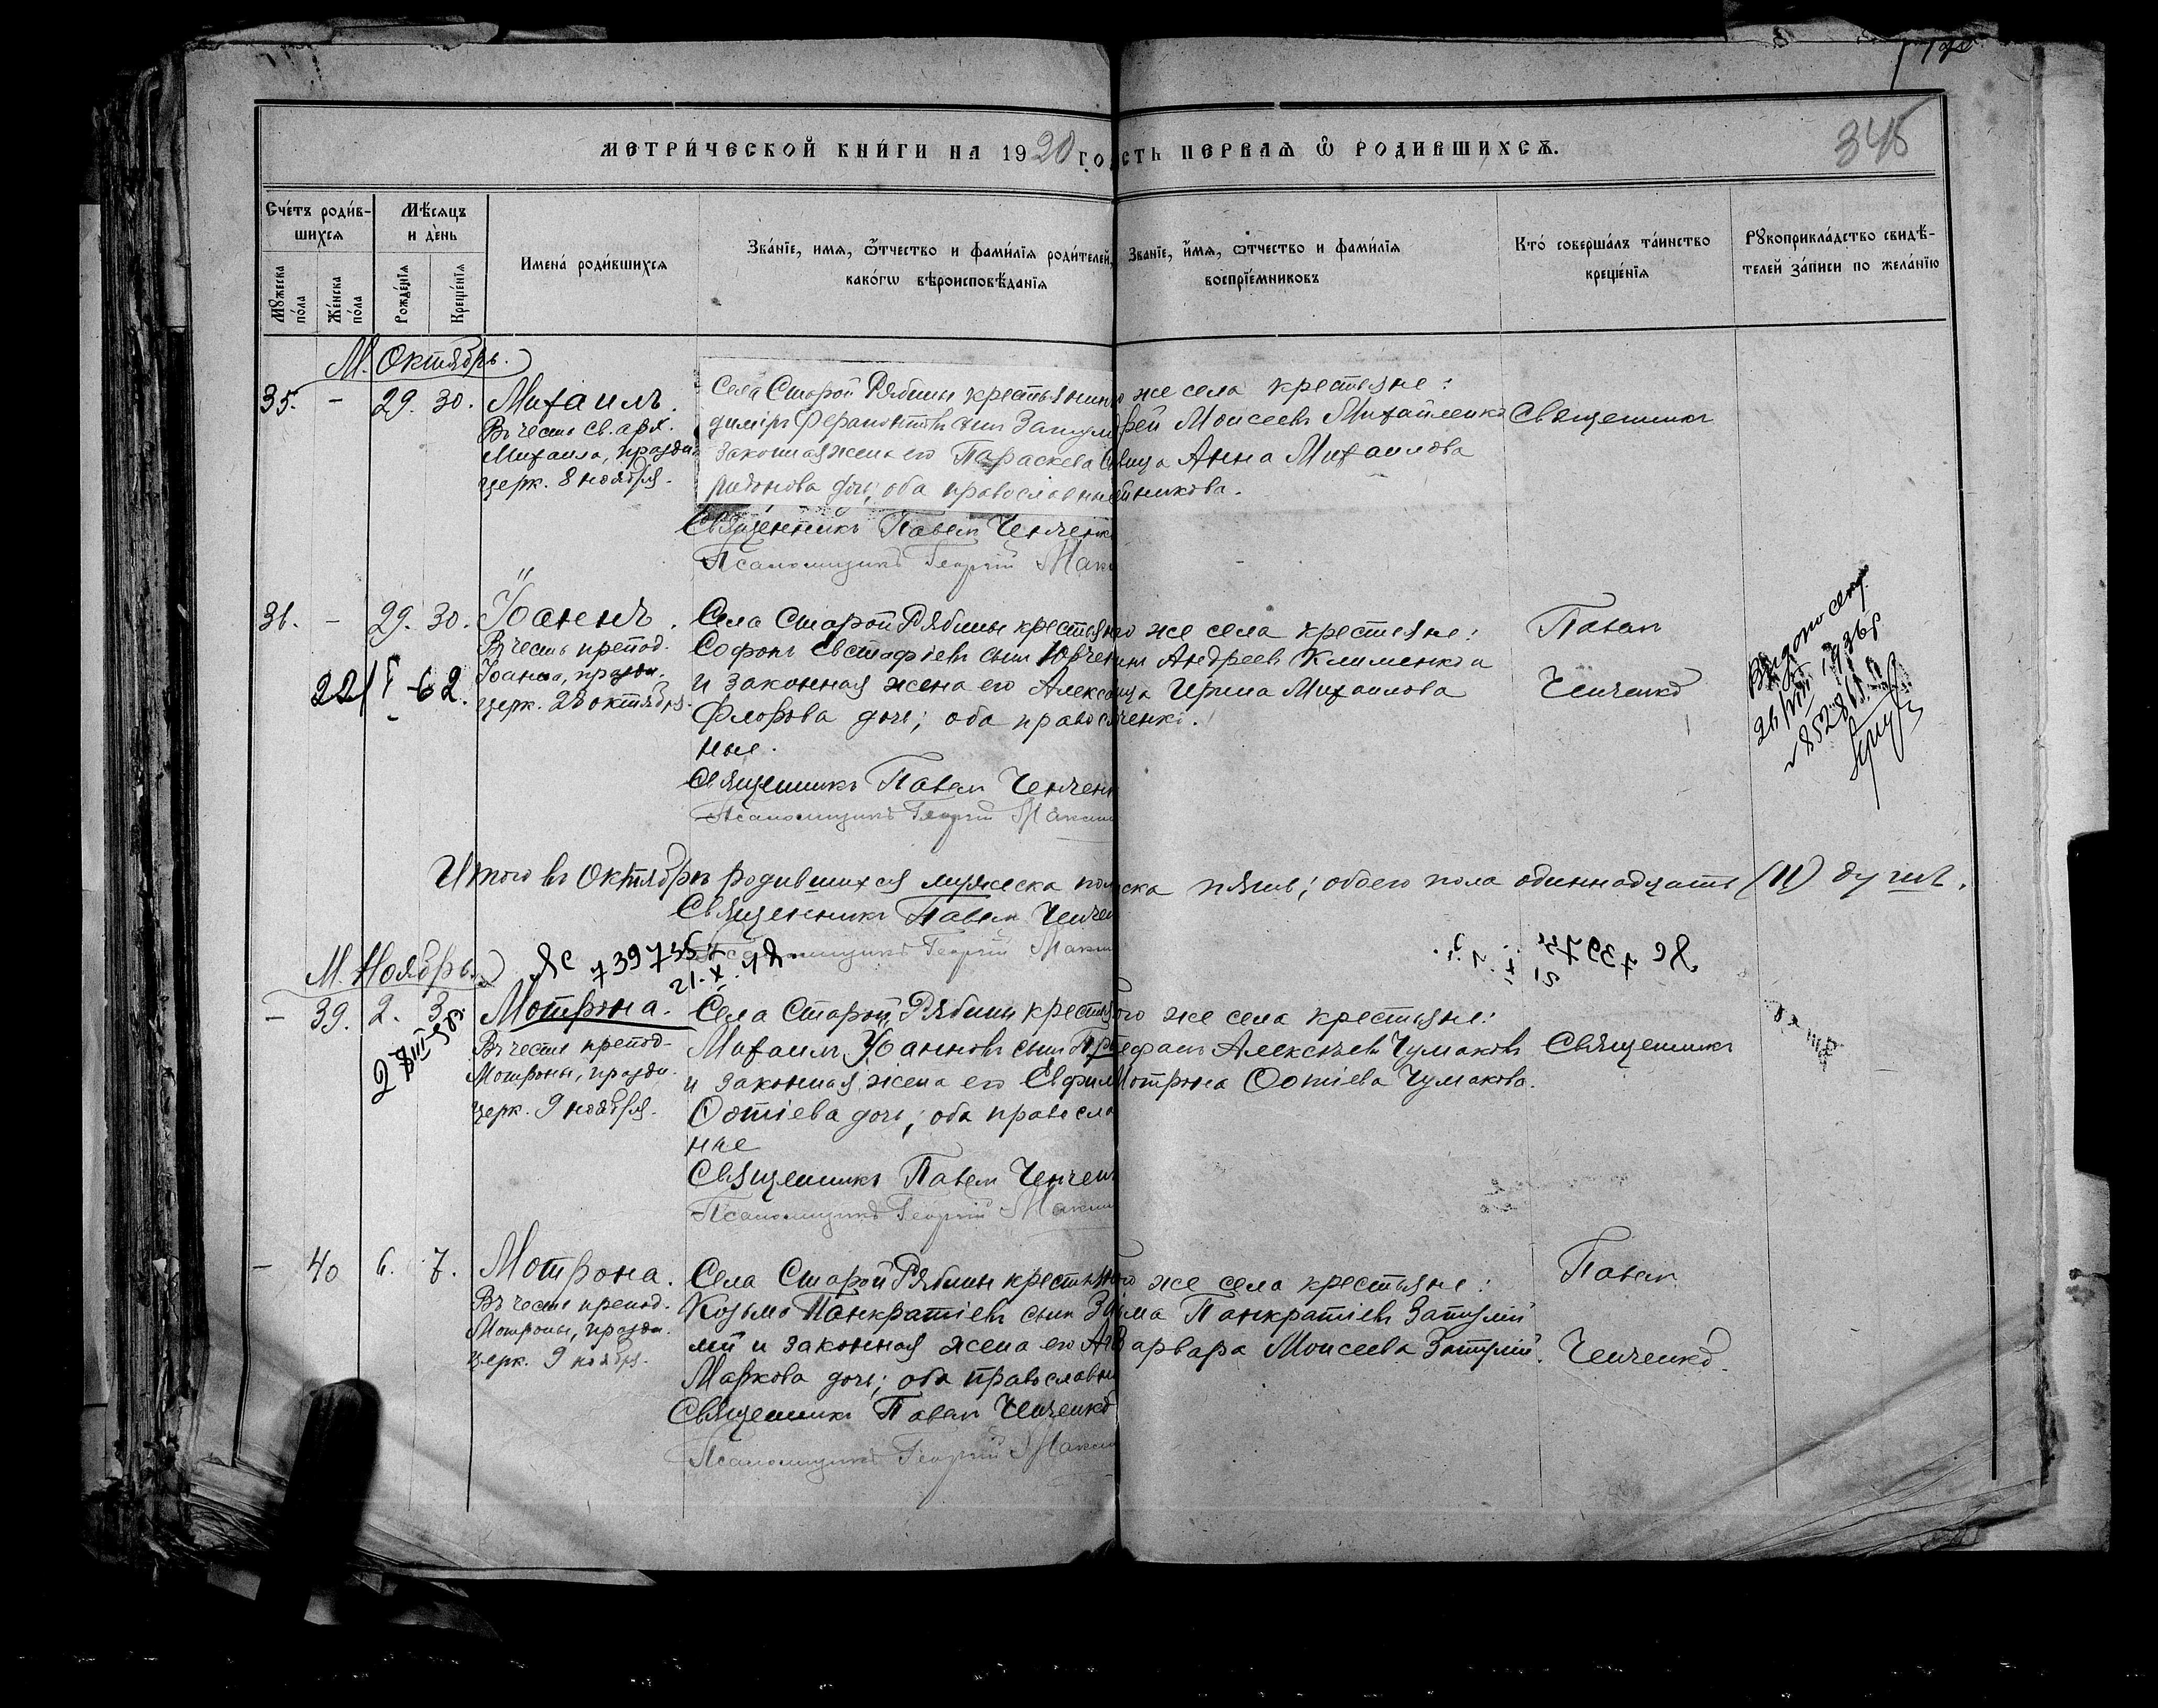 МЕТРИЧЕСКОЙ КНИГИ НА 1920 го
СТЬ ПЕРВАЯ Ѡ РОДИВШИХСЯ.
345
Счетъ родив-
шихся
Мѣсяцъ
и день
Мужеска
пола
Женска
пола
Рожденія
Крещенія
Имена родившихся
Званіе, имя, ѿтчество и фамилія родителей,
какогѡ вѣроисповѣданія
Званіе, имя, ѡтчество и фамилія
воспріемниковъ
Кто совершалъ таинство
крещенія
Рукоприкладство свидѣ-
телей записи по желанію
М. Октябрь.
35. - 29. 30. Михаилъ.
Въ честь св. арх.
Михаила, праздн.
церк. 8 ноября.
Села Старой Рябины крестьянин
законная жена его Параскева
дочь; оба православны
Священникъ Павел Ченченк
Псаломщикъ Георгій Мак
же села крестьяне:
Моисеевъ Михайленко
Анна Михаилова
никова.
Священникъ
36. - 29. 30. Іоаннъ.
Въ честь препод.
Іоанна, праздн.
церк. 23 октября.
22/V-62.
Села Старой Рябины крестьян
Софонъ Евстафіевъ сынъ Юрчен
и законная жена его Алекс
Фло��ова дочь; оба правос
ные.
Священникъ Павел Ченчен
Псаломщикъ Георгій Макси
же села крестьяне:
Андреевъ Клименко
Ирина Михаилова
ченко.
Павел
Ченченко
26/VIII 1936 р
Итого въ Октябрѣ родившихся мужеска по
ска пять; обоего пола одиннадцать (11) душъ.
Священникъ Павел Ченчен
Псаломщикъ Георгій Макси
ЯС 739735
21.X.
М. Ноябрь.
- 39. 2. 3. Мотрона.
Въ честь препод.
Мотроны, праздн.
церк. 9 ноября.
Села Старой Рябины крестья
Михаилъ Іоанновъ сынъ
и законная жена его Евфим
Фотіева дочь; оба правосла
ные
Священникъ Павел Ченчен
Псаломщикъ Георгій Макси
ого же села крестьяне:
Алексѣевъ Чумаковъ
Мотрона Фотіева Чумакова.
Священникъ
- 40 6. 7. Мотрона.
Въ честь препод.
Мотроны, праздн.
церк. 9 ноября.
Села Старой Рябины крестьян
Козьма Панкратіевъ сынъ За
лій и законная жена его
Маркова дочь; оба православн
Священникъ Павел Ченченко
Псаломщикъ Георгій Макси
ого же села крестьяне:
Панкратіевъ Затулій
Варвара Моисеева Затулій.
Павел
Ченченко.